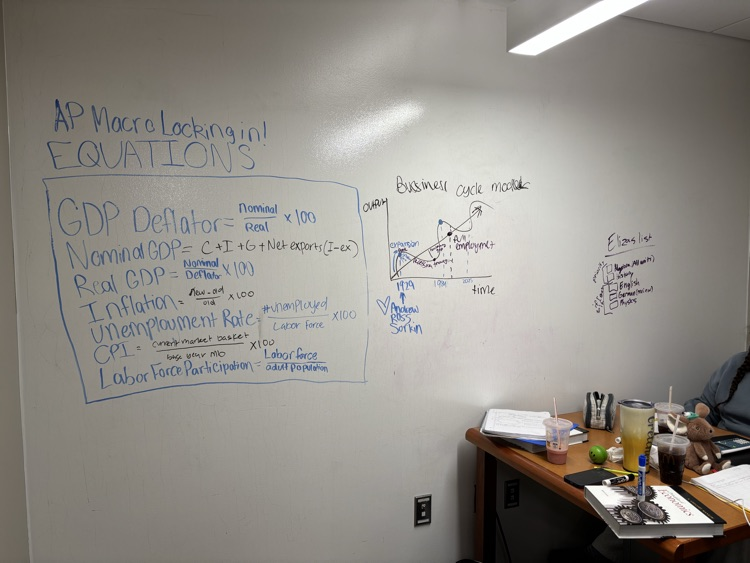 AP Macro Locking in!
EQUATIONS
GDP Deflator = Nominal / Real x 100
Nominal GDP = C + I + G + Net exports (I-ex)
Real GDP = Nominal / Deflator x 100
Inflation = new-old / old x 100
Unemployment Rate = #unemployed / Labor force x 100
CPI = current market basket / base year MB x 100
Labor Force Participation = Labor force / adult population
Bussiness cycle model
output
expansion
full employment
1929
time
Andrew
Ross
Sorkin
Elizas list
History
English
Physics